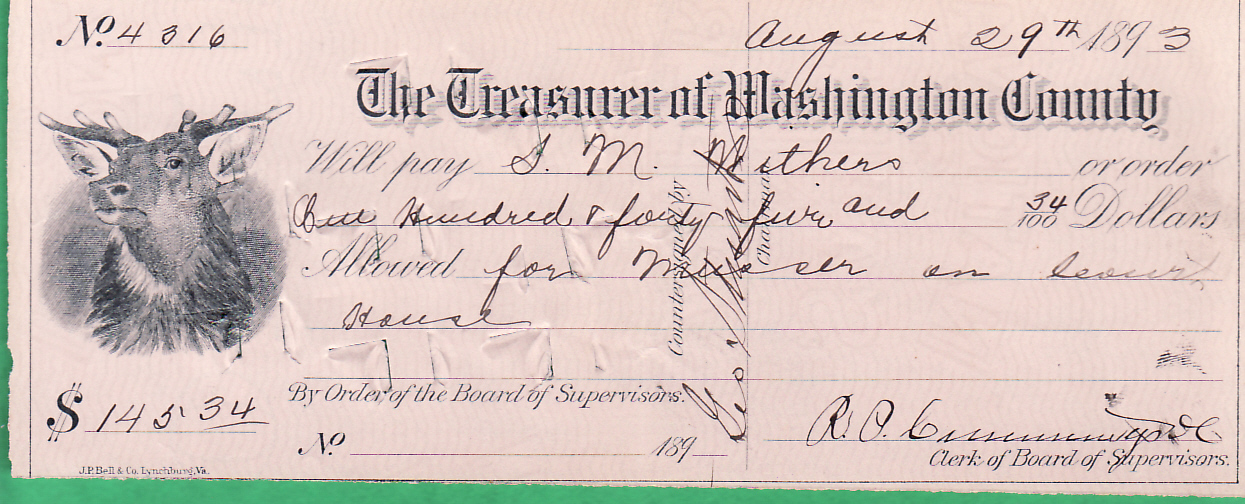 No. 4316
August 29th 1893
The Treasurer of Washington County
Will pay S. M. Withers or order
One Hundred & forty five and 34/100 Dollars
Allowed for on Court
House
Countersigned by
Chairman
By Order of the Board of Supervisors.
$ 145 34
No. 189
R. P. Cummings
Clerk of Board of Supervisors.
J.P. Bell & Co. Lynchburg, Va.